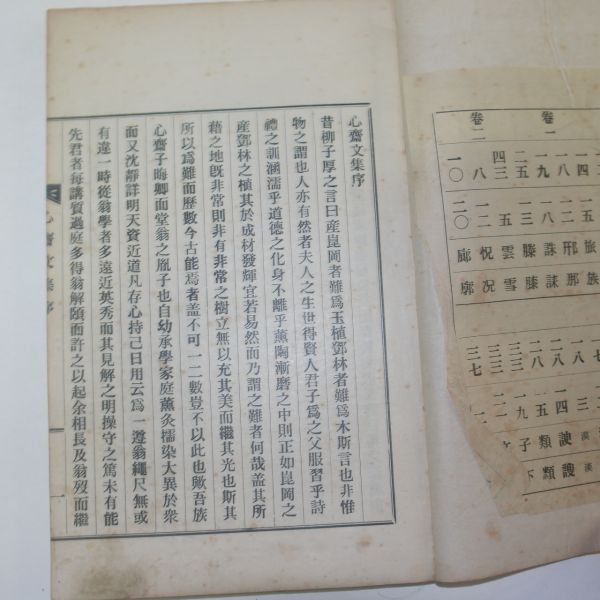 心齋文集序
昔柳子厚之言曰産崑岡者難爲玉植鄧林者難爲木斯言也非惟
物之謂也人亦有然者夫人之生世得賢人君子爲之父服習乎詩
禮之訓涵濡乎道德之化身不離乎薰陶漸磨之中則正如崑岡之
産鄧林之植其於成材發輝宜若易然而乃謂之難者何哉盖其所
藉之地旣非常則非有非常之樹立無以充其美而繼其光也斯其
所以爲難而歷數今古能焉者盖不可一二數豈不以此也歟吾族
心齋子晦卿而堂翁之胤子也自幼承學家庭薰灸擩染大異於衆
而又沈靜詳明天資近道凡存心持己日用云爲一遵翁繩尺無或
有違一時從翁學者多遠近英秀而其見解之明操守之篤未有能
先君者每講質過庭多得翁解頤而許之以起余相長及翁歿而繼
心齋文集序
一
卷一
卷二
旅 族
邢 那
誅 誄
滕 膝
雲 雪
祝 况
廊 廓
諛 謏
類 類
子 下